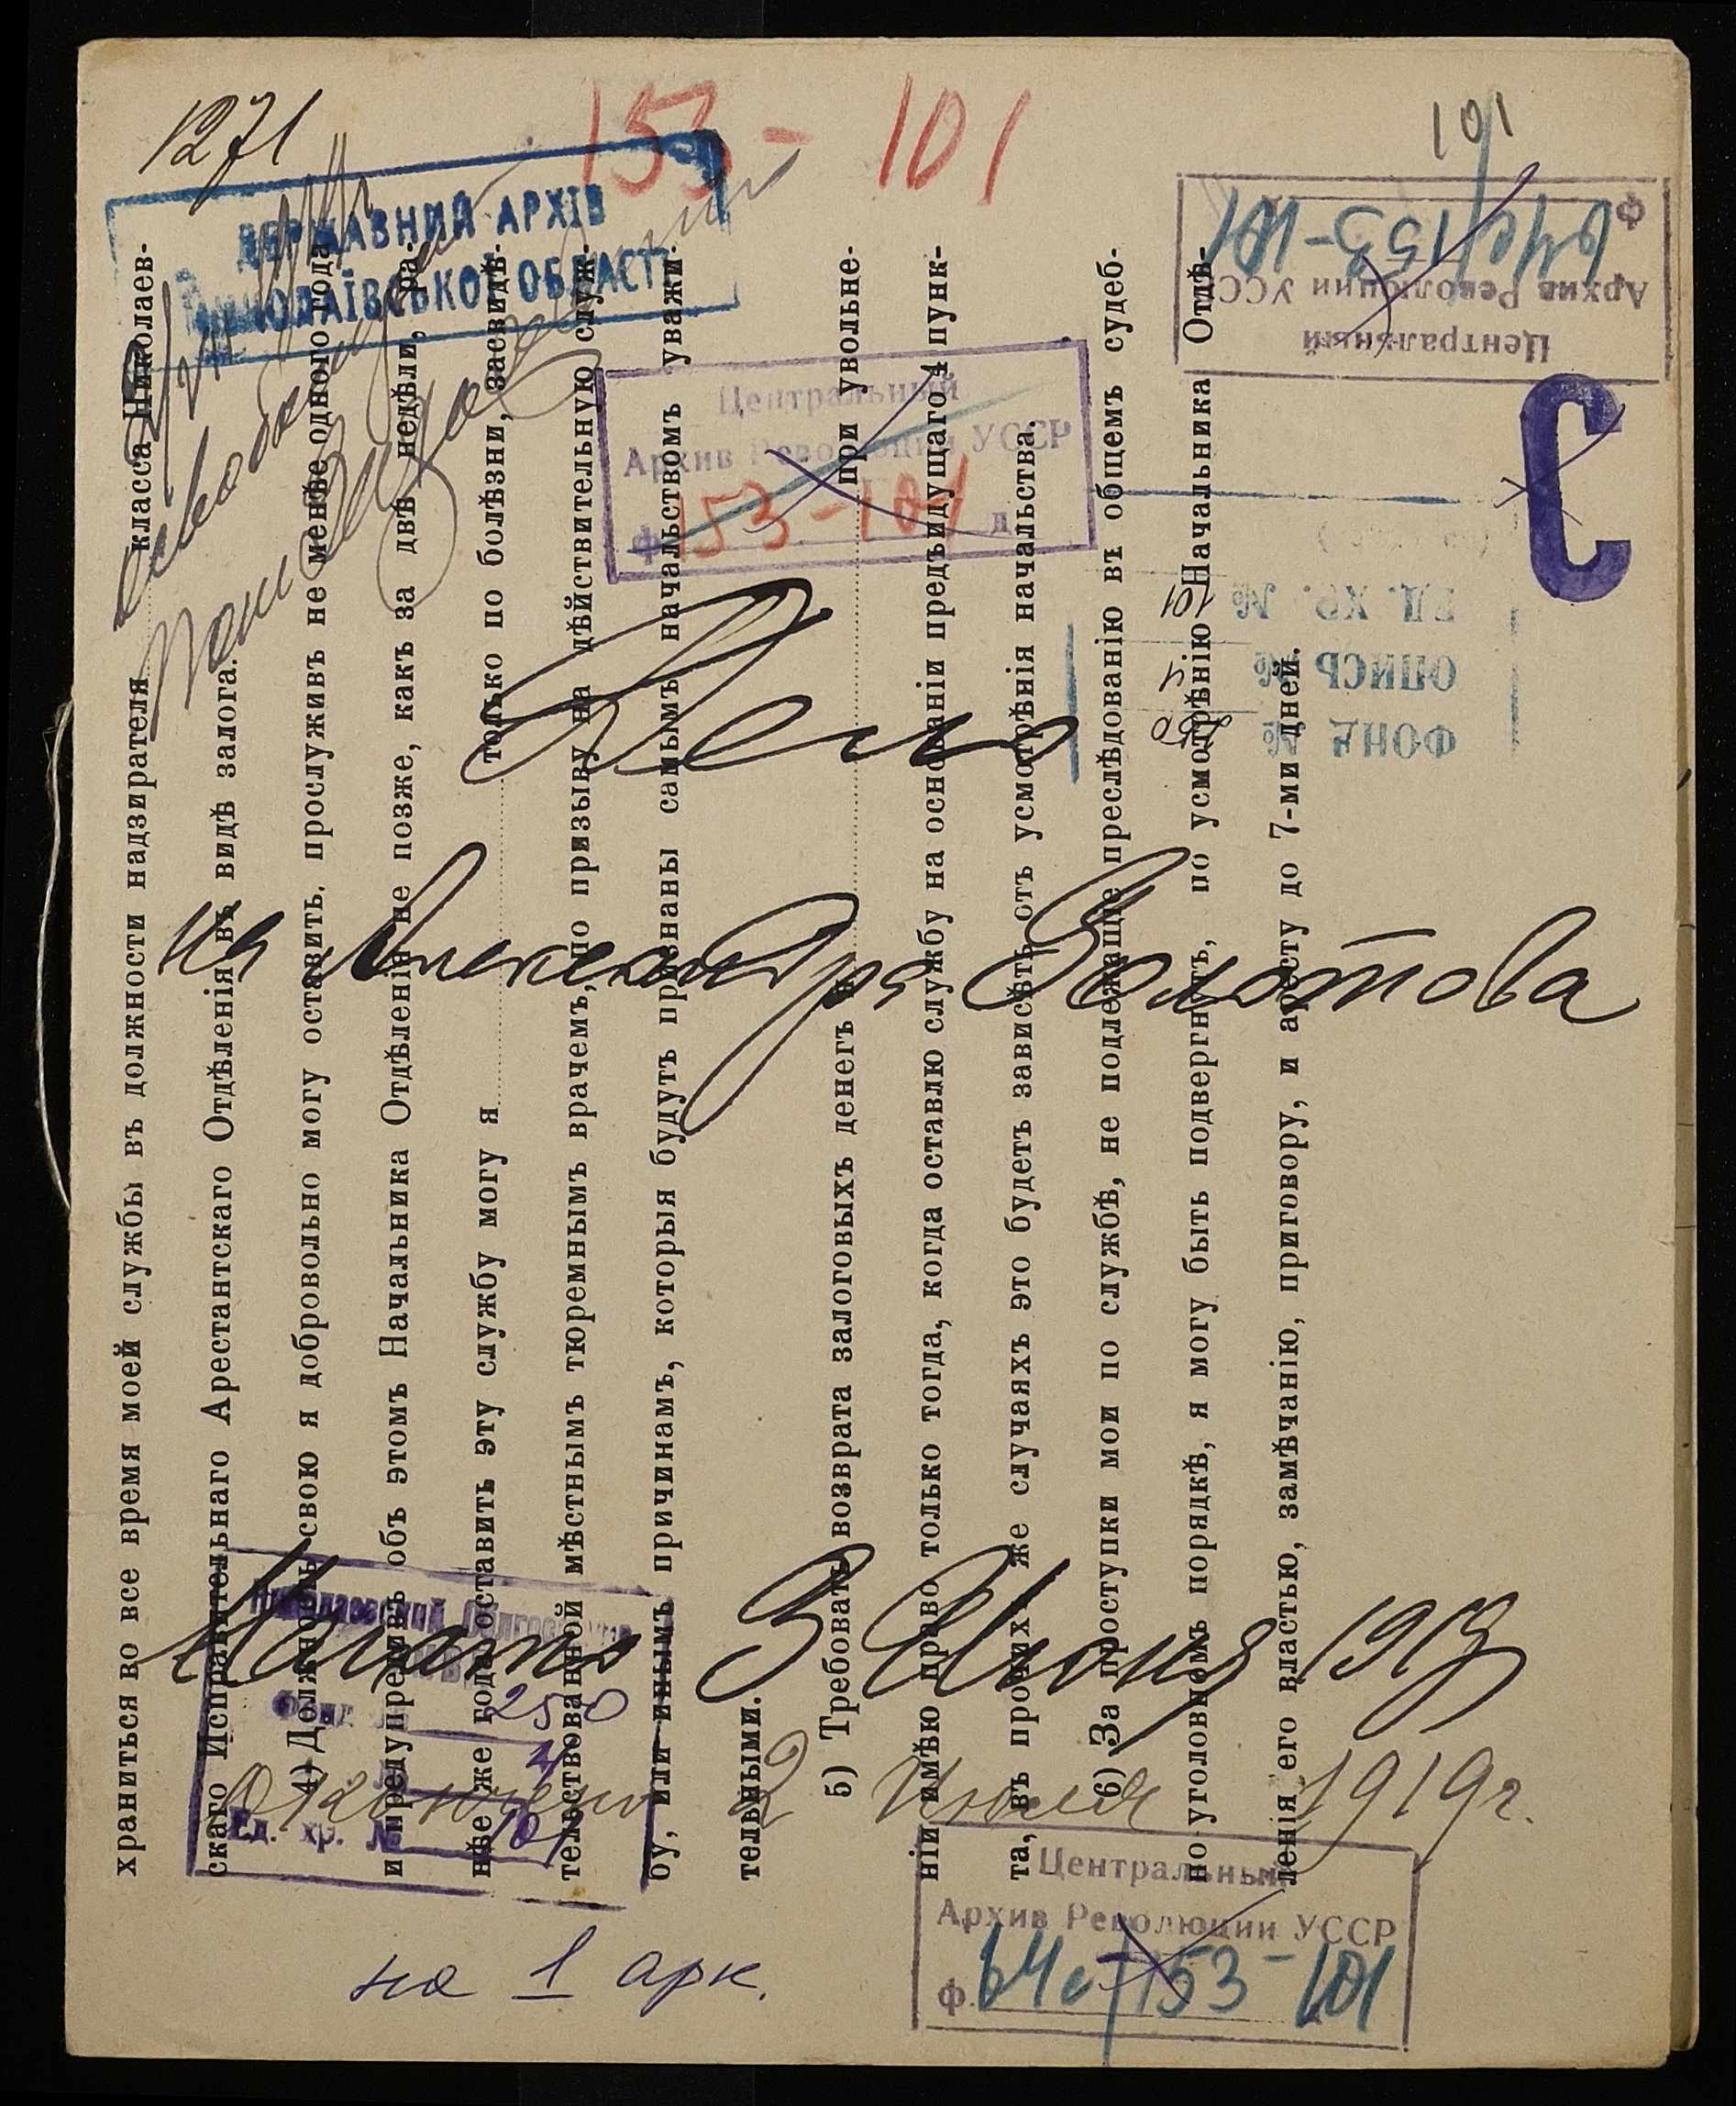 1271
153 - 101
101
ДЕРЖАВНИЙ АРХІВ
МИКОЛАЇВСЬКОЇ ОБЛАСТІ
Центральный
Архив Революции УССР
ф. 64с/153-101
Центральный
Архив Революции УССР
ф 153-101 д
С
ФОНД № 250
ОПИСЬ №
ЕД. ХР. № 101
Дело
на Александра Золотова
Начато 3 Июня 1919
Окончено 2 Июля 1919 г.
Фонд 250
4
Ед. хр. № 101
Центральный
Архив Революции УССР
ф. 64с/153-101
на 1 арк.
храниться во все время моей службы въ должности надзирателя класса Николаев-
скаго Исправительнаго Арестантскаго Отдѣленія въ видѣ залога.
4) Должность свою я добровольно могу оставить, прослуживъ не менѣе одного года
и предупредивъ объ этомъ Начальника Отдѣленія не позже, какъ за двѣ недѣли, ра-
нѣе же года оставить эту службу могу я только по болѣзни, засвидѣ-
тельствованной мѣстнымъ тюремнымъ врачемъ, по призыву на дѣйствительную служ-
бу, или инымъ причинамъ, которыя будутъ признаны самымъ начальствомъ уважи-
тельными.
5) Требовать возврата залоговыхъ денегъ при увольне-
ніи имѣю право только тогда, когда оставлю службу на основаніи предъидущаго 4 пунк-
та, въ прочихъ же случаяхъ это будетъ зависѣть отъ усмотрѣнія начальства.
6) За проступки мои по службѣ, не подлежащіе преслѣдованію въ общемъ судеб-
но уголовномъ порядкѣ, я могу быть подвергнутъ, по усмотрѣнію Начальника Отдѣ-
ленія его властью, замѣчанію, приговору, и аресту до 7-ми дней.